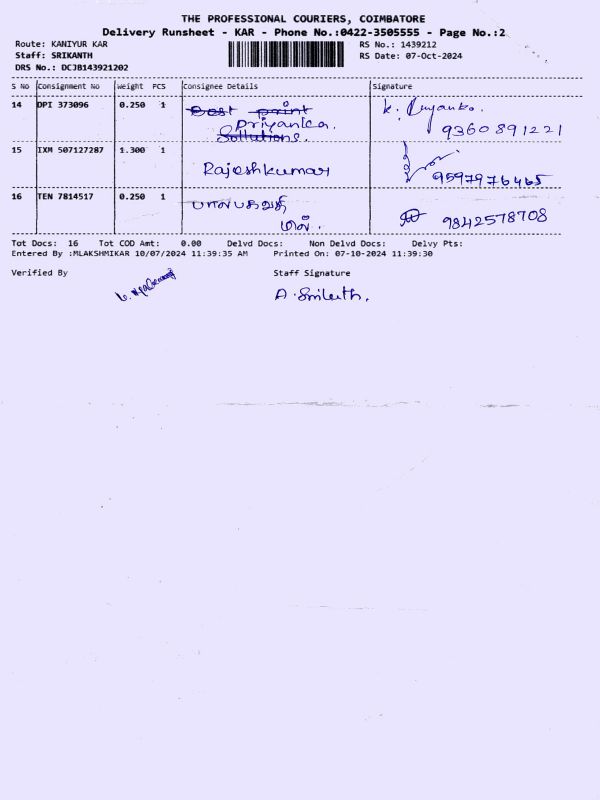 THE PROFESSIONAL COURIERS, COIMBATORE
Delivery Runsheet - KAR - Phone No.:0422-3505555 - Page No.:2
Route: KANIYUR KAR RS No.: 1439212
Staff: SRIKANTH RS Date: 07-Oct-2024
DRS No.: DCJB143921202
S No Consignment No Weight PCS Consignee Details Signature
14 DPI 373096 0.250 1 Best print
Priyanica.
Solutions. 9360891221
15 IXM 507127287 1.300 1 Rajeshkumar 9597976465
16 TEN 7814517 0.250 1 9842578708
Tot Docs: 16 Tot COD Amt: 0.00 Delvd Docs: Non Delvd Docs: Delvy Pts:
Entered By :MLAKSHMIKAR 10/07/2024 11:39:35 AM Printed On: 07-10-2024 11:39:30
Verified By Staff Signature